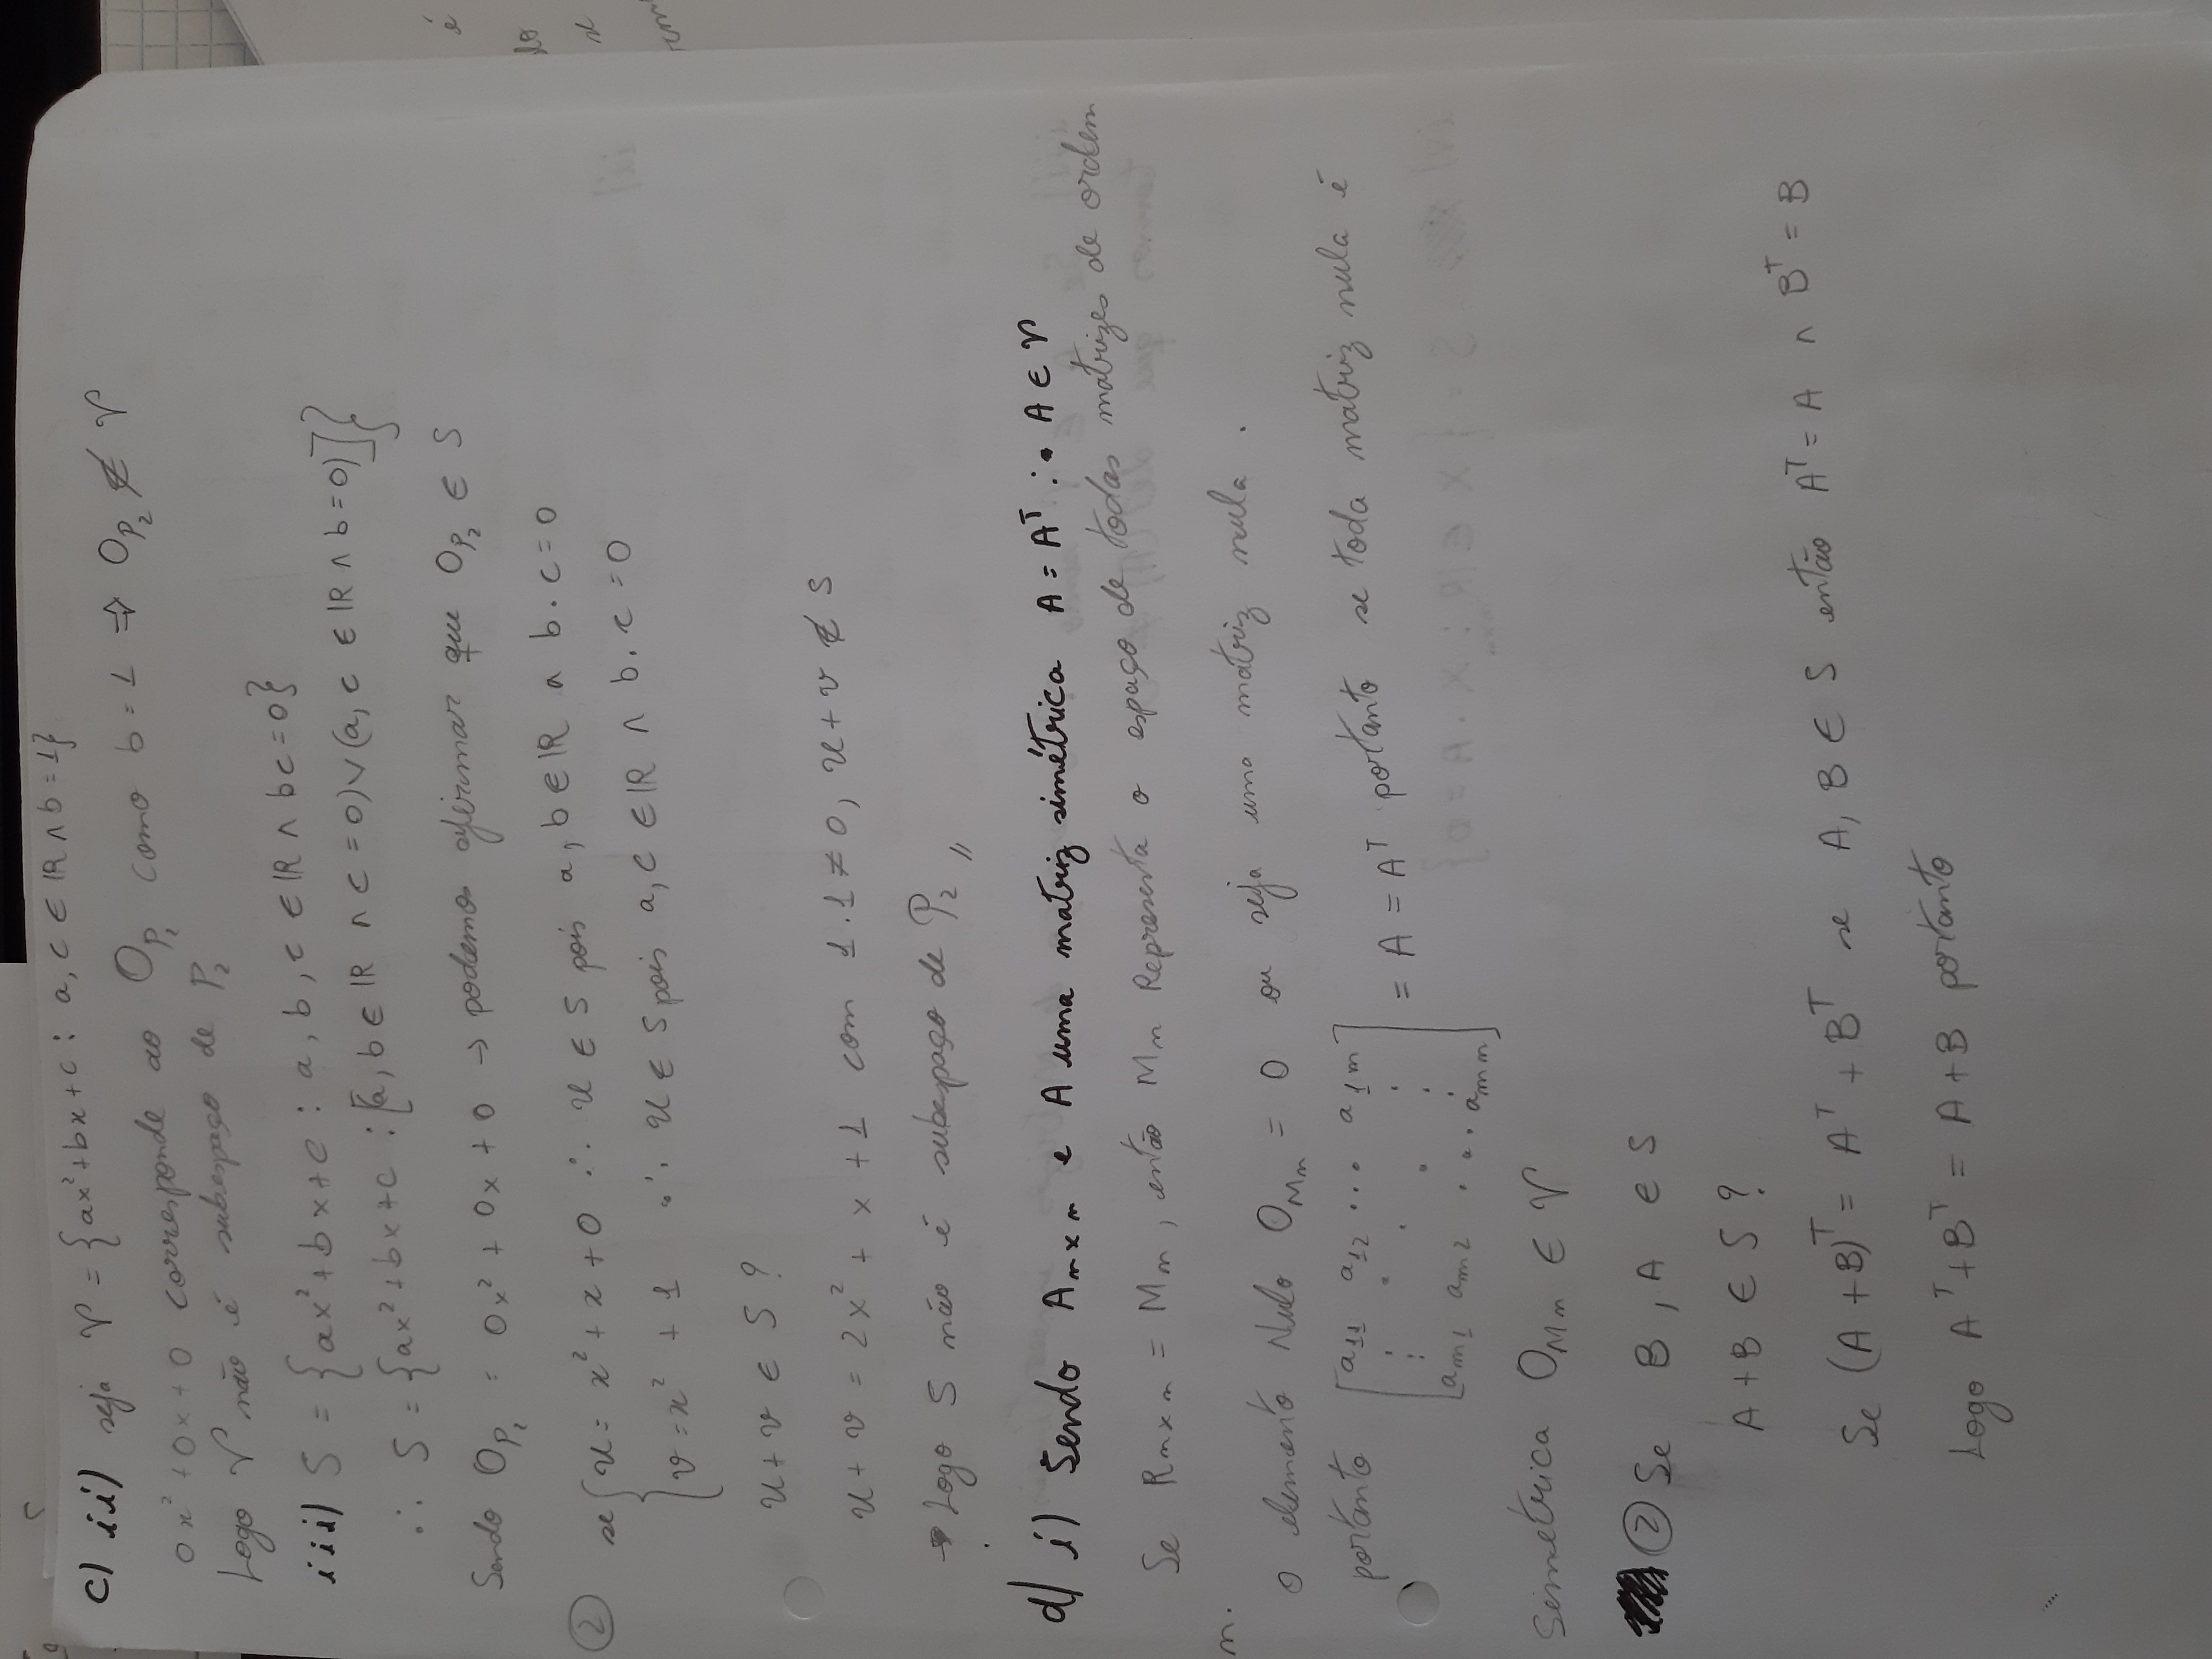 c) ii) seja V = {ax² + bx + c : a, c ∈ ℝ ∧ b = 1}
0x² + 0x + 0 corresponde ao O_P₂ como b = 1 ⇒ O_P₂ ∉ V
Logo V não é subespaço de P₂
iii) S = {ax² + bx + c : a, b, c ∈ ℝ ∧ bc = 0}
∴ S = {ax² + bx + c : [a, b ∈ ℝ ∧ c = 0) ∨ (a, c ∈ ℝ ∧ b = 0)]}
Sendo O_P₂ = 0x² + 0x + 0 → podemos afirmar que O_P₂ ∈ S
② se { u = x² + x + 0 ∴ u ∈ S pois a, b ∈ ℝ ∧ b . c = 0
v = x² + 1 ∴ u ∈ S pois a, c ∈ ℝ ∧ b . c = 0
u + v ∈ S ?
u + v = 2x² + x + 1 com 1 . 1 ≠ 0, u + v ∉ S
→ Logo S não é subespaço de P₂ //
d) i) Sendo A_n×n e A uma matriz simétrica A = Aᵀ ∴ A ∈ V
Se R_n×n = M_n, então M_n Representa o espaço de todas matrizes de ordem
n.
O elemento Nulo O_Mn = 0 ou seja uma matriz nula .
portanto [a₁₁ a₁₂ ... a₁n
⋮ ⋱ ⋮
an₁ an₂ ... ann] = A = Aᵀ portanto se toda matriz nula é
Simetrica O_Mn ∈ V
② Se B , A ∈ S
A + B ∈ S ?
Se (A + B)ᵀ = Aᵀ + Bᵀ se A, B ∈ S então Aᵀ = A ∧ Bᵀ = B
Logo Aᵀ + Bᵀ = A + B portanto